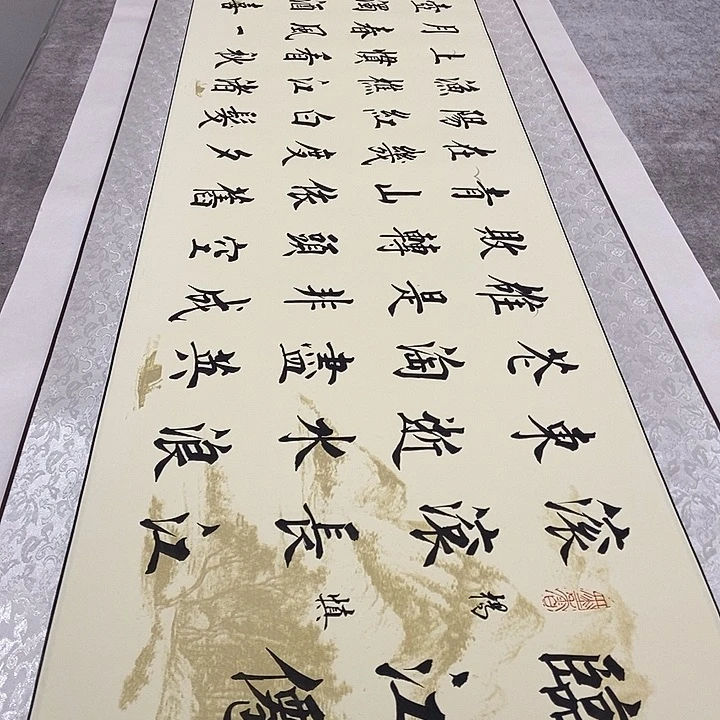 臨江僊
楊慎
滾滾長江
東逝水浪
花淘盡英
雄是非成
敗轉頭空
青山依舊
在幾度夕
陽紅白髮
漁樵江渚
上慣看秋
月春風一
壺濁酒喜